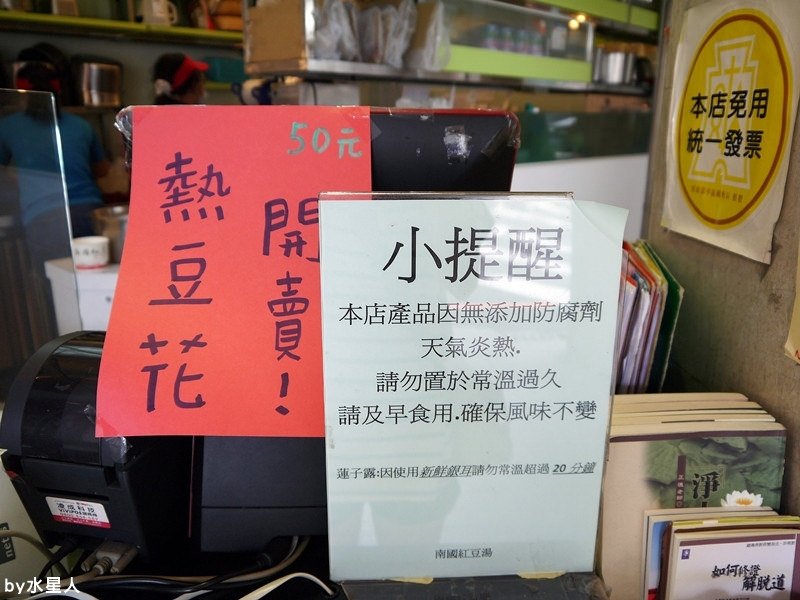 50元
熱豆花
開賣!
小提醒
本店產品因無添加防腐劑
天氣炎熱.
請勿置於常溫過久
請及早食用.確保風味不變
蓮子露:因使用新鮮銀耳請勿常溫超過 20 分鐘
南國紅豆湯
本店免用
統一發票
淨
如何修證
解脫道
凌成科技
by水星人